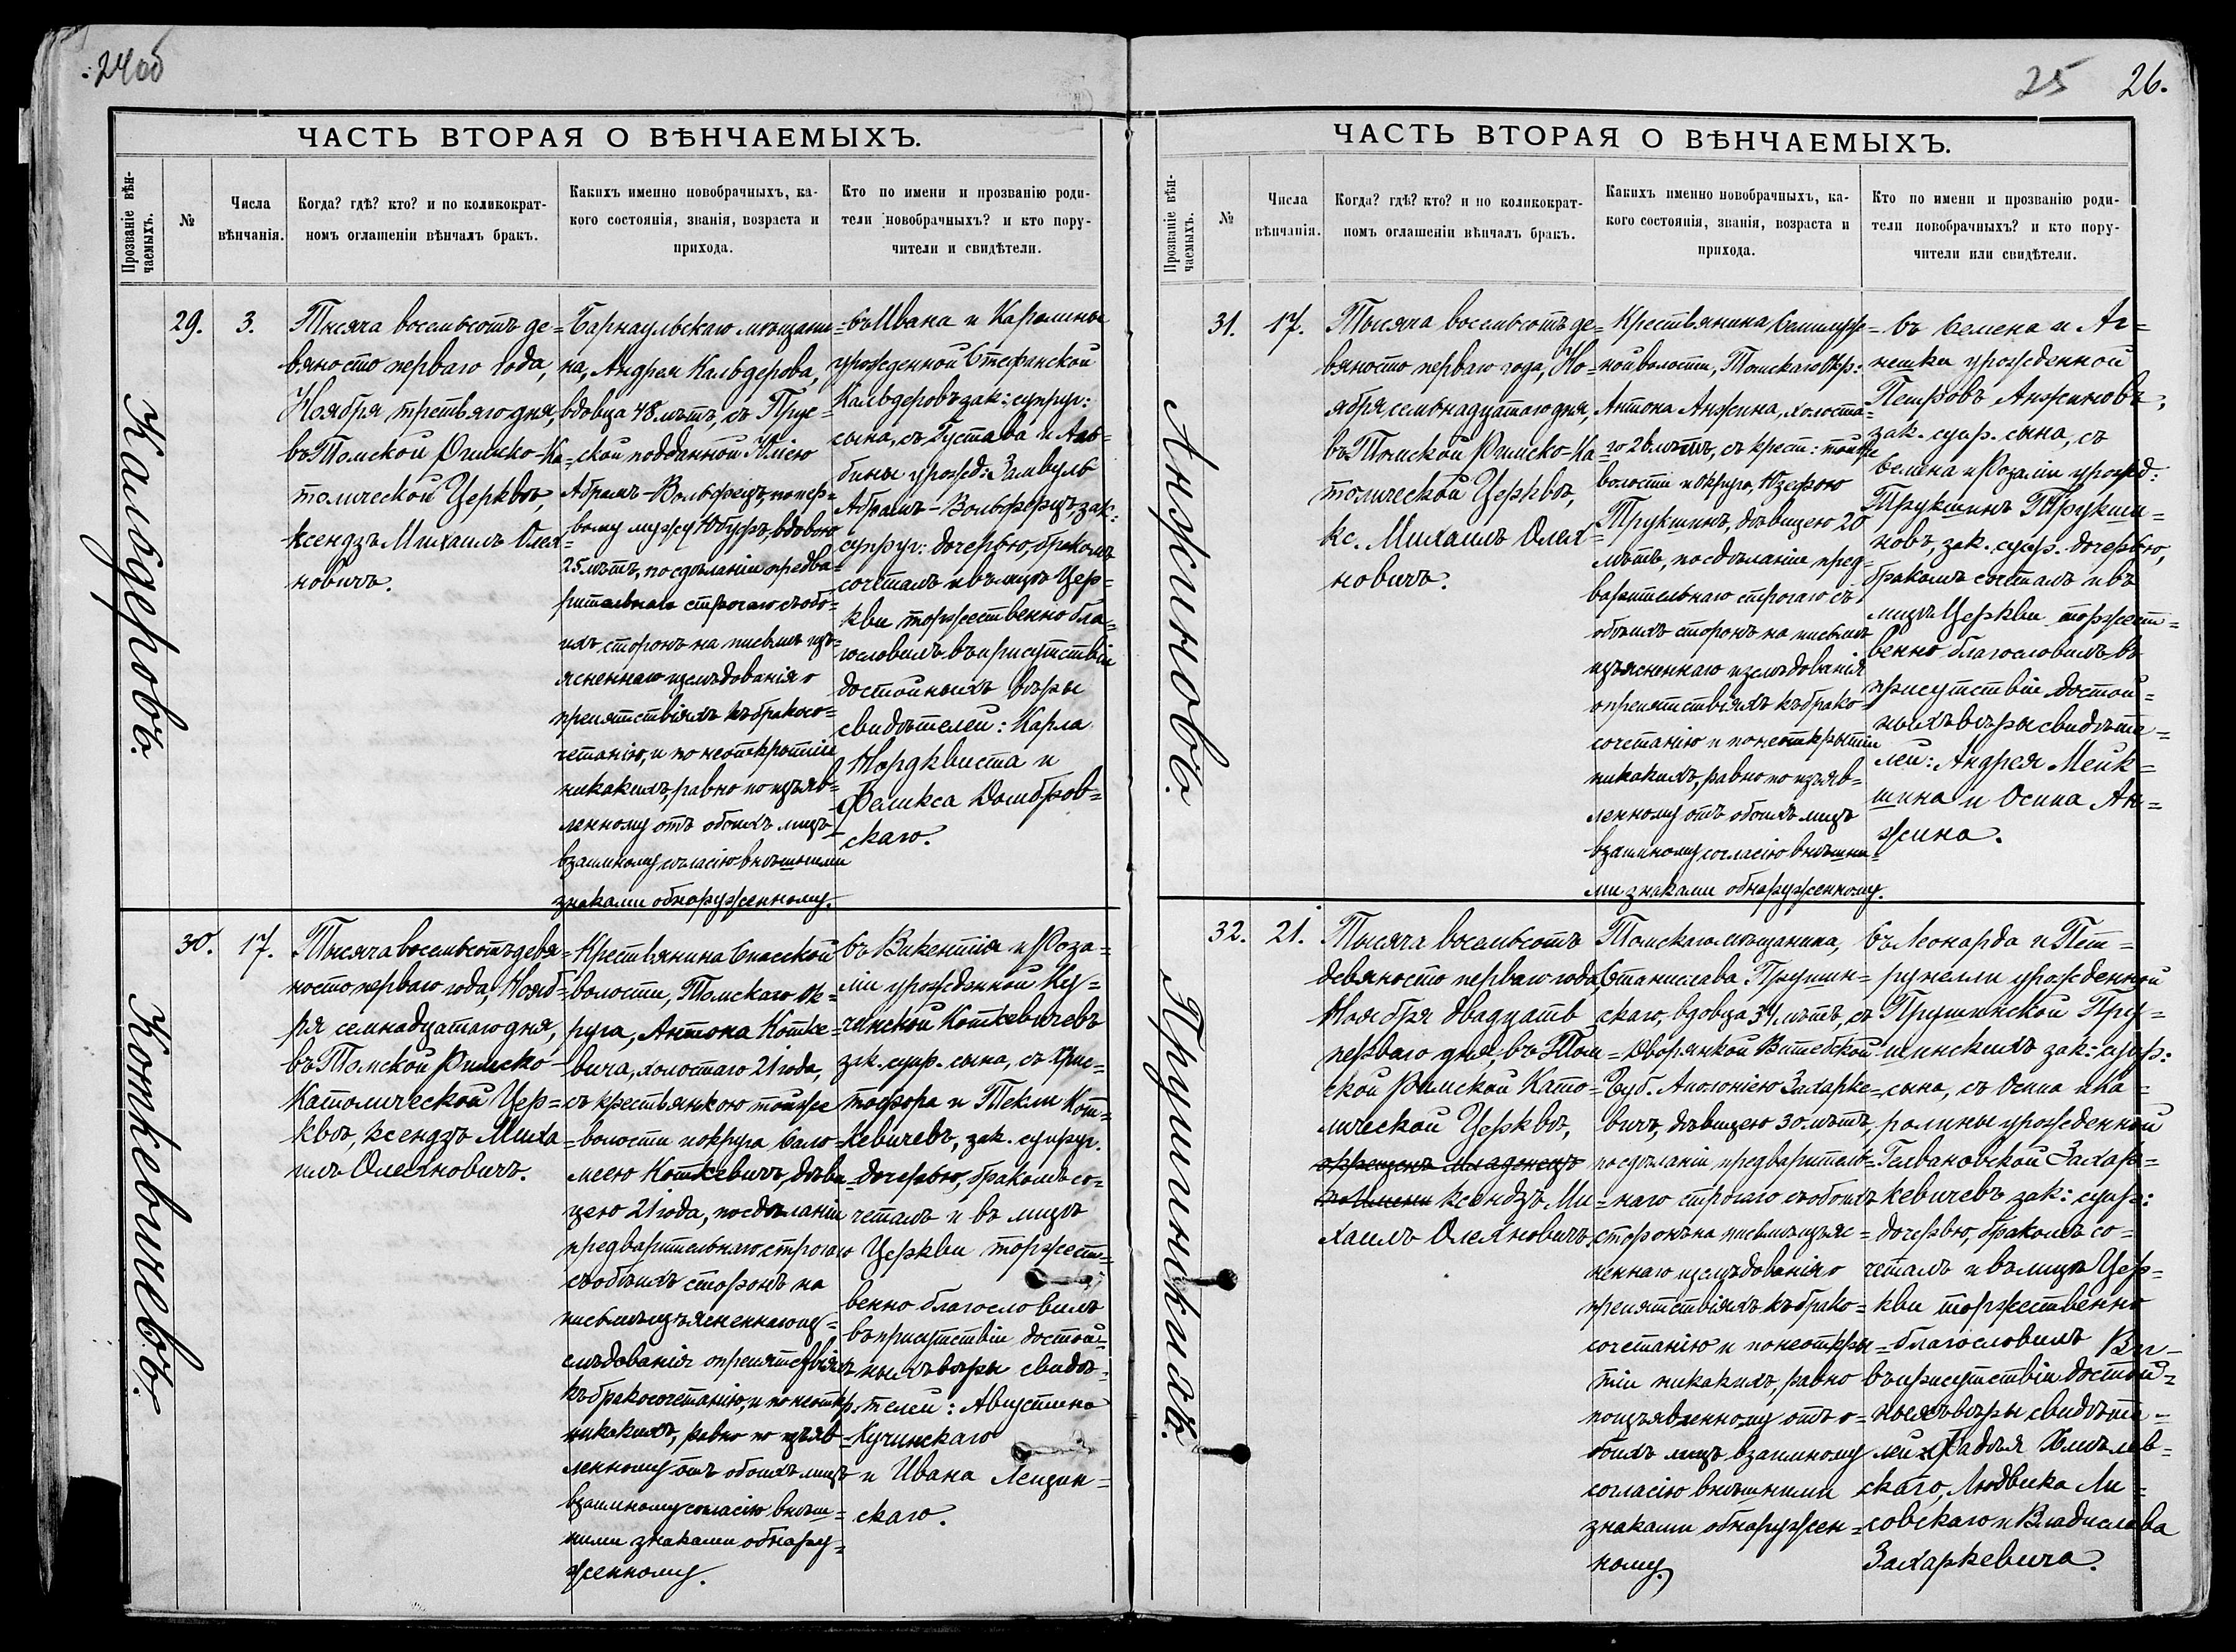 24об
ЧАСТЬ ВТОРАЯ О ВѢНЧАЕМЫХЪ.
Прозваніе вѣн-
чаемыхъ.
№
Числа
вѣнчанія.
Когда? гдѣ? кто? и по коликократ-
номъ оглашеніи вѣнчалъ бракъ.
Какихъ именно новобрачныхъ, ка-
кого состоянія, званія, возраста и
прихода.
Кто по имени и прозванію роди-
тели новобрачныхъ? и кто пору-
чители и свидѣтели.
Кальдеровъ.
29.
3.
Тысяча восемьсотъ де=
вяносто перваго года,
Ноября третьяго дня,
въ Томской Римско-Ка=
толической Церквѣ,
ксендзъ Михаилъ Олех=
новичъ.
Барнаульскаго мѣщани=
на, Андрея Кальдерова,
вдовца 48 лѣтъ, съ Прус=
ской подданной
Абрамъ-Вольферцъ, по пер=
вому мужу вдовою
25 лѣтъ, по сдѣланіи предва=
рительнаго строгаго съ обо=
ихъ сторонъ на письмѣ изъ=
ясненнаго изслѣдованія о
препятствіяхъ къ бракосо=
четанію, и по неоткрытіи
никакихъ, равно по изъяв=
ленному отъ обоихъ лицъ
взаимному согласію внѣшними
знаками обнаруженному.
съ Ивана и Каролины
урожденной Стефанской
Кальдеровъ зак: супруг:
сына, съ Густава и Аль=
бины урожд: Замвуль
Абрамъ-Вольферцъ, зак:
супруг: дочерью, бракомъ
сочеталъ и въ лицѣ Цер=
кви торжественно бла=
гословилъ въ присутствіи
достойныхъ вѣры
свидѣтелей: Карла
Нордквиста и
Феликса Домбров=
скаго.
Коткевичевъ.
30.
17.
Тысяча восемьсотъ девя=
носто перваго года, Нояб=
ря семнадцатаго дня,
въ Томской Римско-
Католической Цер=
квѣ, ксендзъ Миха=
илъ Олехновичъ.
Крестьянина Спасской
волости, Томскаго Ок=
руга, Антона Котке=
вича, холостаго 21 года,
съ крестьянкою тойже
волости и округа Сало=
меею Коткевичъ, дѣви=
цею 21 года, по сдѣланіи
предварительнаго строгаго
съ обѣихъ сторонъ на
письмѣ изъясненнаго из=
слѣдованія о препятствіяхъ
къ бракосочетанію, и по неоткр.
никакихъ, равно по изъяв=
ленному отъ обоихъ лицъ
взаимному согласію внѣш=
ними знаками обнару=
женному.
съ Викентія и Роза=
ліи урожденной Ку=
чинской Коткевичевъ
зак. супр. сына, съ Хрис=
тофора и Текли Кот=
кевичевъ, зак. супруг.
дочерью, бракомъ со=
четалъ и въ лицѣ
Церкви торжест=
венно благословилъ
въ присутствіи достой=
ныхъ вѣры свидѣ=
телей: Августина
Кучинскаго
и Ивана Лещин=
скаго.
25
26.
ЧАСТЬ ВТОРАЯ О ВѢНЧАЕМЫХЪ.
Прозваніе вѣн-
чаемыхъ.
№
Числа
вѣнчанія.
Когда? гдѣ? кто? и по коликократ-
номъ оглашеніи вѣнчалъ бракъ.
Какихъ именно новобрачныхъ, ка-
кого состоянія, званія, возраста и
прихода.
Кто по имени и прозванію роди-
тели новобрачныхъ? и кто пору-
чители или свидѣтели.
Анжиновъ.
31.
17.
Тысяча восемьсотъ де=
вяносто перваго года, Но=
ября семьнадцатаго дня,
въ Томской Римско-Ка=
толической Церквѣ,
кс. Михаилъ Олех=
новичъ.
Крестьянина Семилуж=
ной волости, Томскаго Окр:
Антона Анжина, холоста=
го 26 лѣтъ, съ крест: тойже
волости и Округа, Юзефою
Трукшинъ, дѣвицею 20
лѣтъ, по сдѣланіи пред=
варительнаго строгаго съ
обѣихъ сторонъ на письмѣ
изъясненнаго изслѣдованія
о препятствіяхъ къ брако=
сочетанію и по неоткрытіи
никакихъ, равно по изъяв=
ленному отъ обоихъ лицъ
взаимному согласію внѣшни=
ми знаками обнаруженному.
съ Семена и Аг=
нешки урожденной
Петровъ Анжиновъ,
зак. супр. сына, съ
Семена и Розаліи урожд:
Трукшинъ Трукши=
новъ, зак. супр. дочерью,
бракомъ сочеталъ и въ
лицѣ Церкви торжест=
венно благословилъ въ
присутствіи достой=
ныхъ вѣры свидѣте=
лей: Андрея Мейк=
шина и Осипа Ан=
жина.
Прушинскихъ.
32.
21.
Тысяча восемьсотъ
девяносто перваго года,
Ноября двадцать
перваго дня, въ Том=
ской Римской Като=
лической Церквѣ,
окрещенъ младенецъ
по имени ксендзъ Ми=
хаилъ Олехновичъ,
Томскаго мѣщанина,
Станислава Прушин=
скаго, вдовца 34 лѣтъ, съ
Дворянкой Витебской
Губ. Аполоніею Захарке=
вичъ, дѣвицею 30 лѣтъ,
по сдѣланіи предваритель=
наго строгаго съ обоихъ
сторонъ на письмѣ изъяс=
неннаго изслѣдованія о
препятствіяхъ къ брако=
сочетанію и по неоткры=
тіи никакихъ, равно
по изъявленному отъ о=
боихъ лицъ взаимному
согласію внѣшними
знаками обнаружен=
ному.
съ Леонарда и Пет=
рунелли урожденной
Прушинской Пру=
шинскихъ зак: супр:
сына, съ Осипа и Ка=
ролины урожденной
Гелвановской Захар=
кевичевъ зак: супр:
дочерью, бракомъ со=
четалъ и въ лицѣ Цер=
кви торжественно
благословилъ
въ присутствіи достой=
ныхъ вѣры свидѣте=
лей: Фадѣя Хмѣлев=
скаго, Людвика Ли=
совскаго и Владислава
Захаркевича.